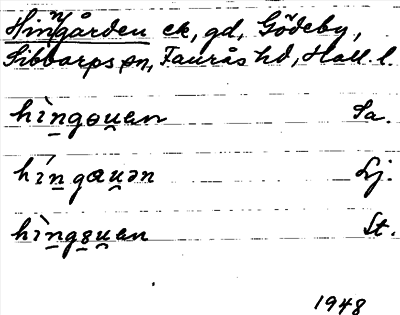 Hinngården ck, gd, Gödeby,
Sibbarps sn, Faurås hd, Hall. l.
hìngɵu̯en Sa.
hìngau̯ən Lj.
hìngɞu̯en St.
1948